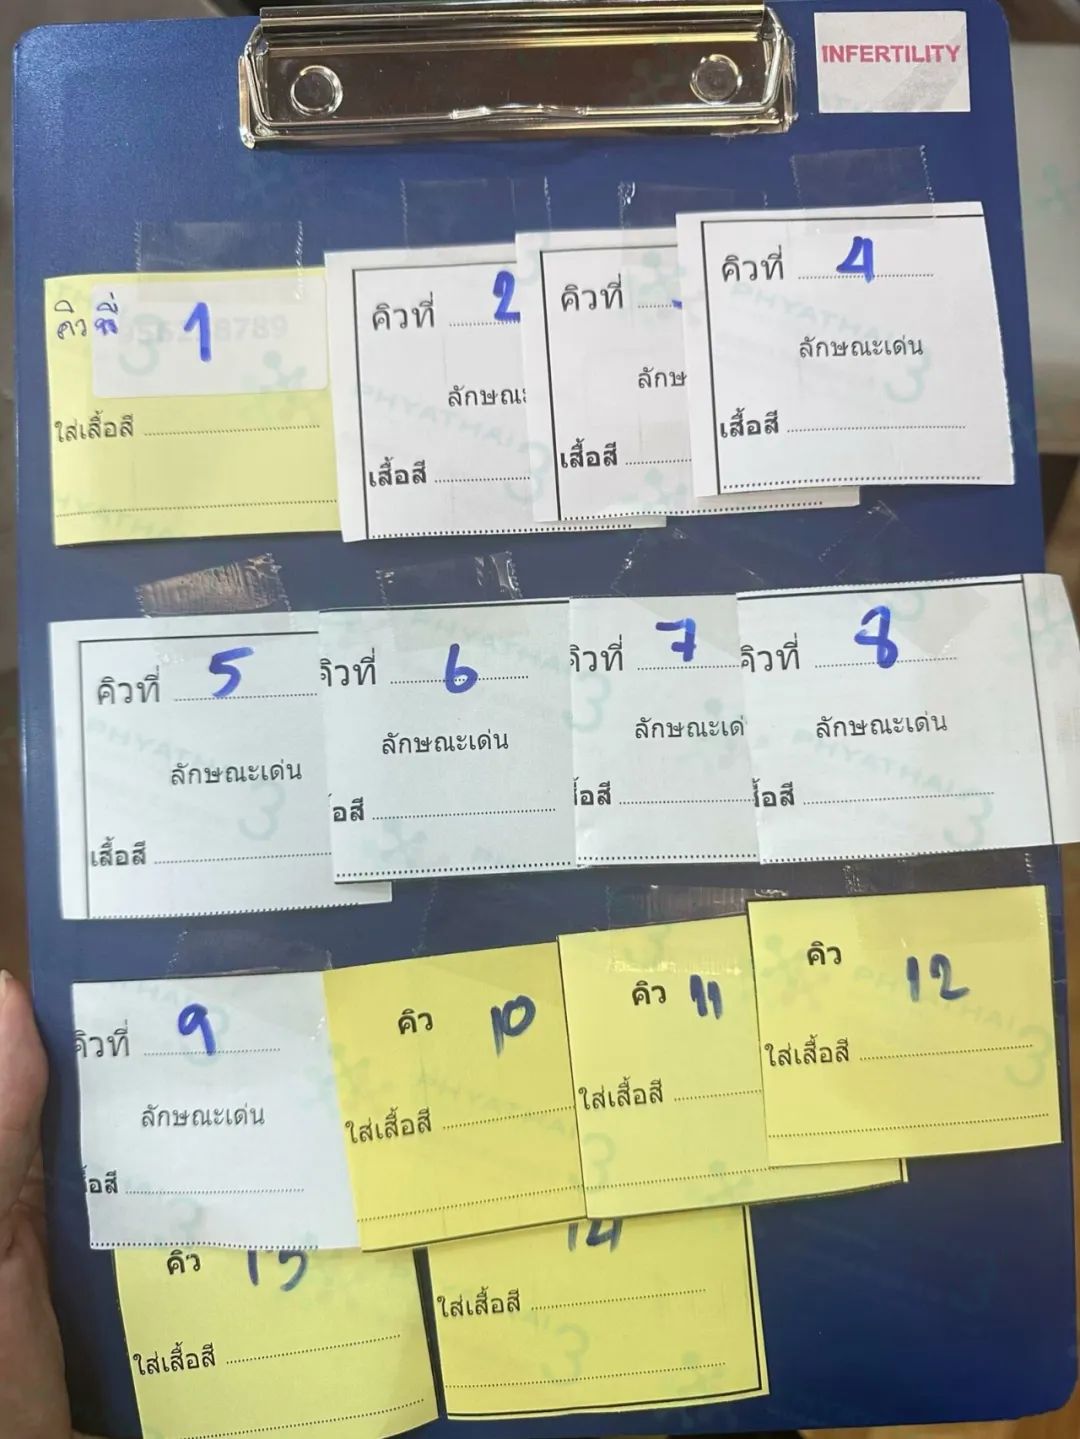 INFERTILITY
คิวที่ 1
ใส่เสื้อสี
คิวที่ 2
ลักษณะ
เสื้อสี
คิวที่
ลักษ
เสื้อสี
คิวที่ 4
ลักษณะเด่น
เสื้อสี
คิวที่ 5
ลักษณะเด่น
เสื้อสี
คิวที่ 6
ลักษณะเด่น
อสี
คิวที่ 7
ลักษณะเด่
อสี
คิวที่ 8
ลักษณะเด่น
อสี
คิวที่ 9
ลักษณะเด่น
อสี
คิว 10
ใส่เสื้อสี
คิว 11
ใส่เสื้อสี
คิว 12
ใส่เสื้อสี
คิว 13
ใส่เสื้อสี
14
ใส่เสื้อสี